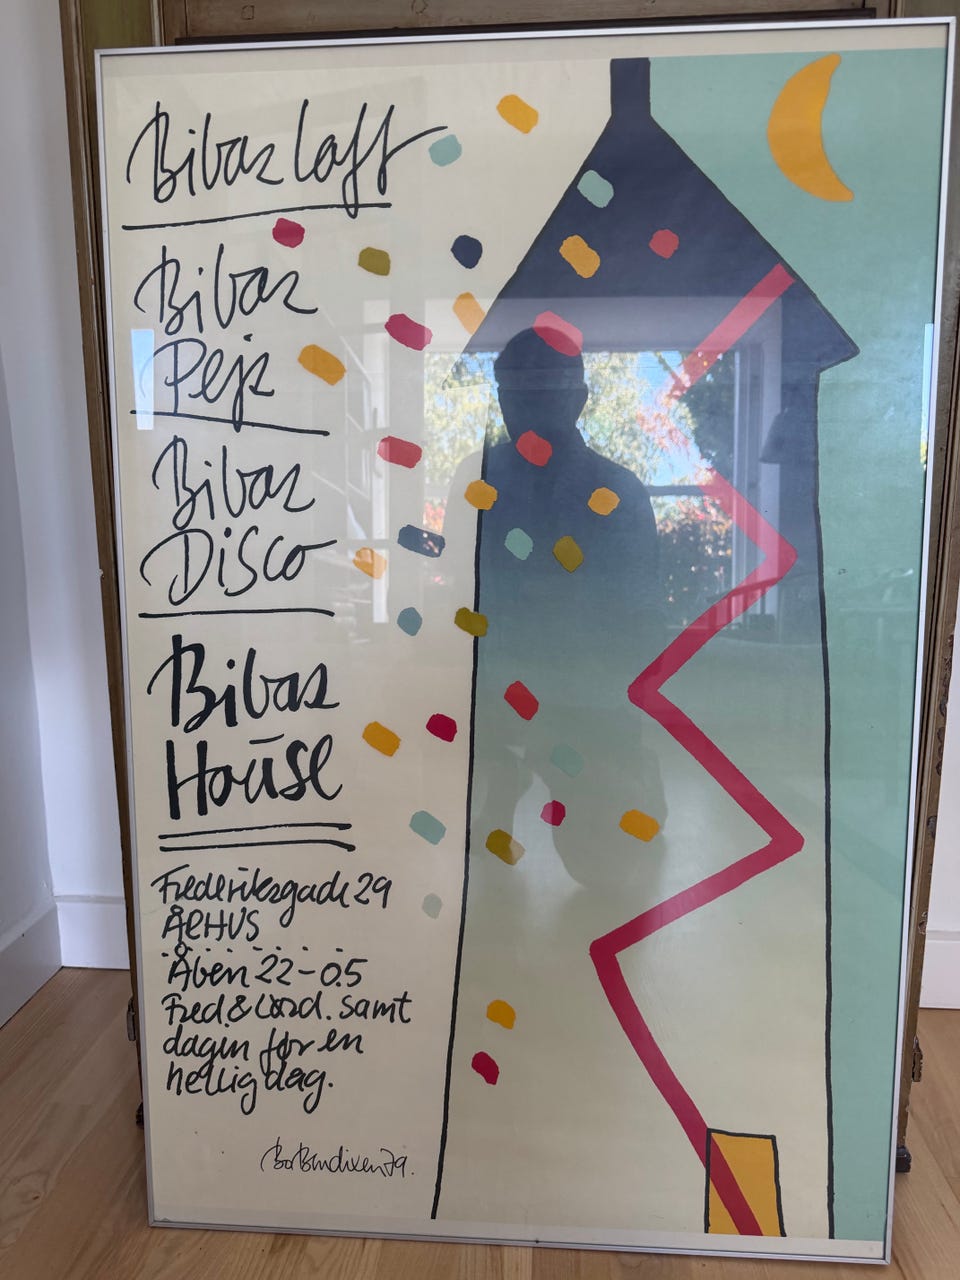 Bibas loft
Bibas
Pejs
Bibas
Disco
Bibas
House
Frederiksgade 29
ÅRHUS
Åben 22-05
Fred. & Lørd. samt
dagen før en
hellig dag.
Bo Bendixen 79.